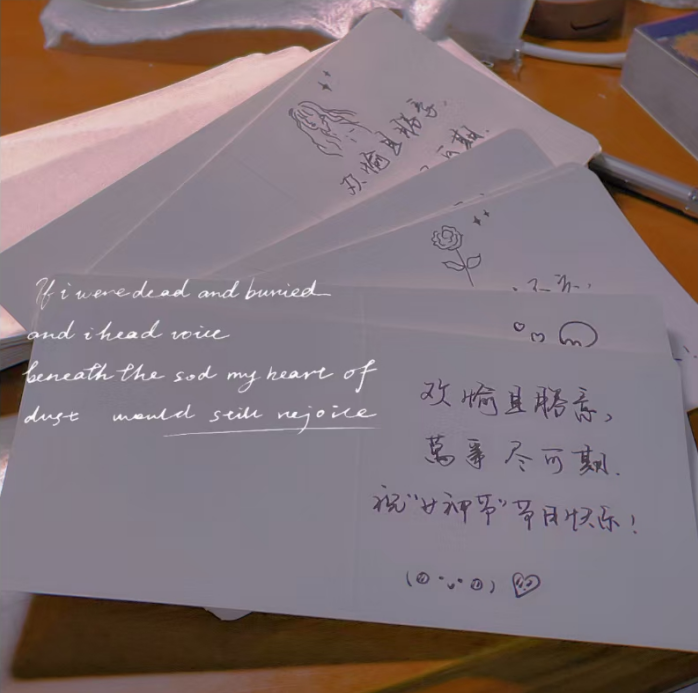 欢愉且勝意,
可期.
If i were dead and burried
and i head voice
beneath the sod my heart of
dust would still rejoice
欢愉且勝意,
萬事尽可期.
祝"女神节"节日快乐!